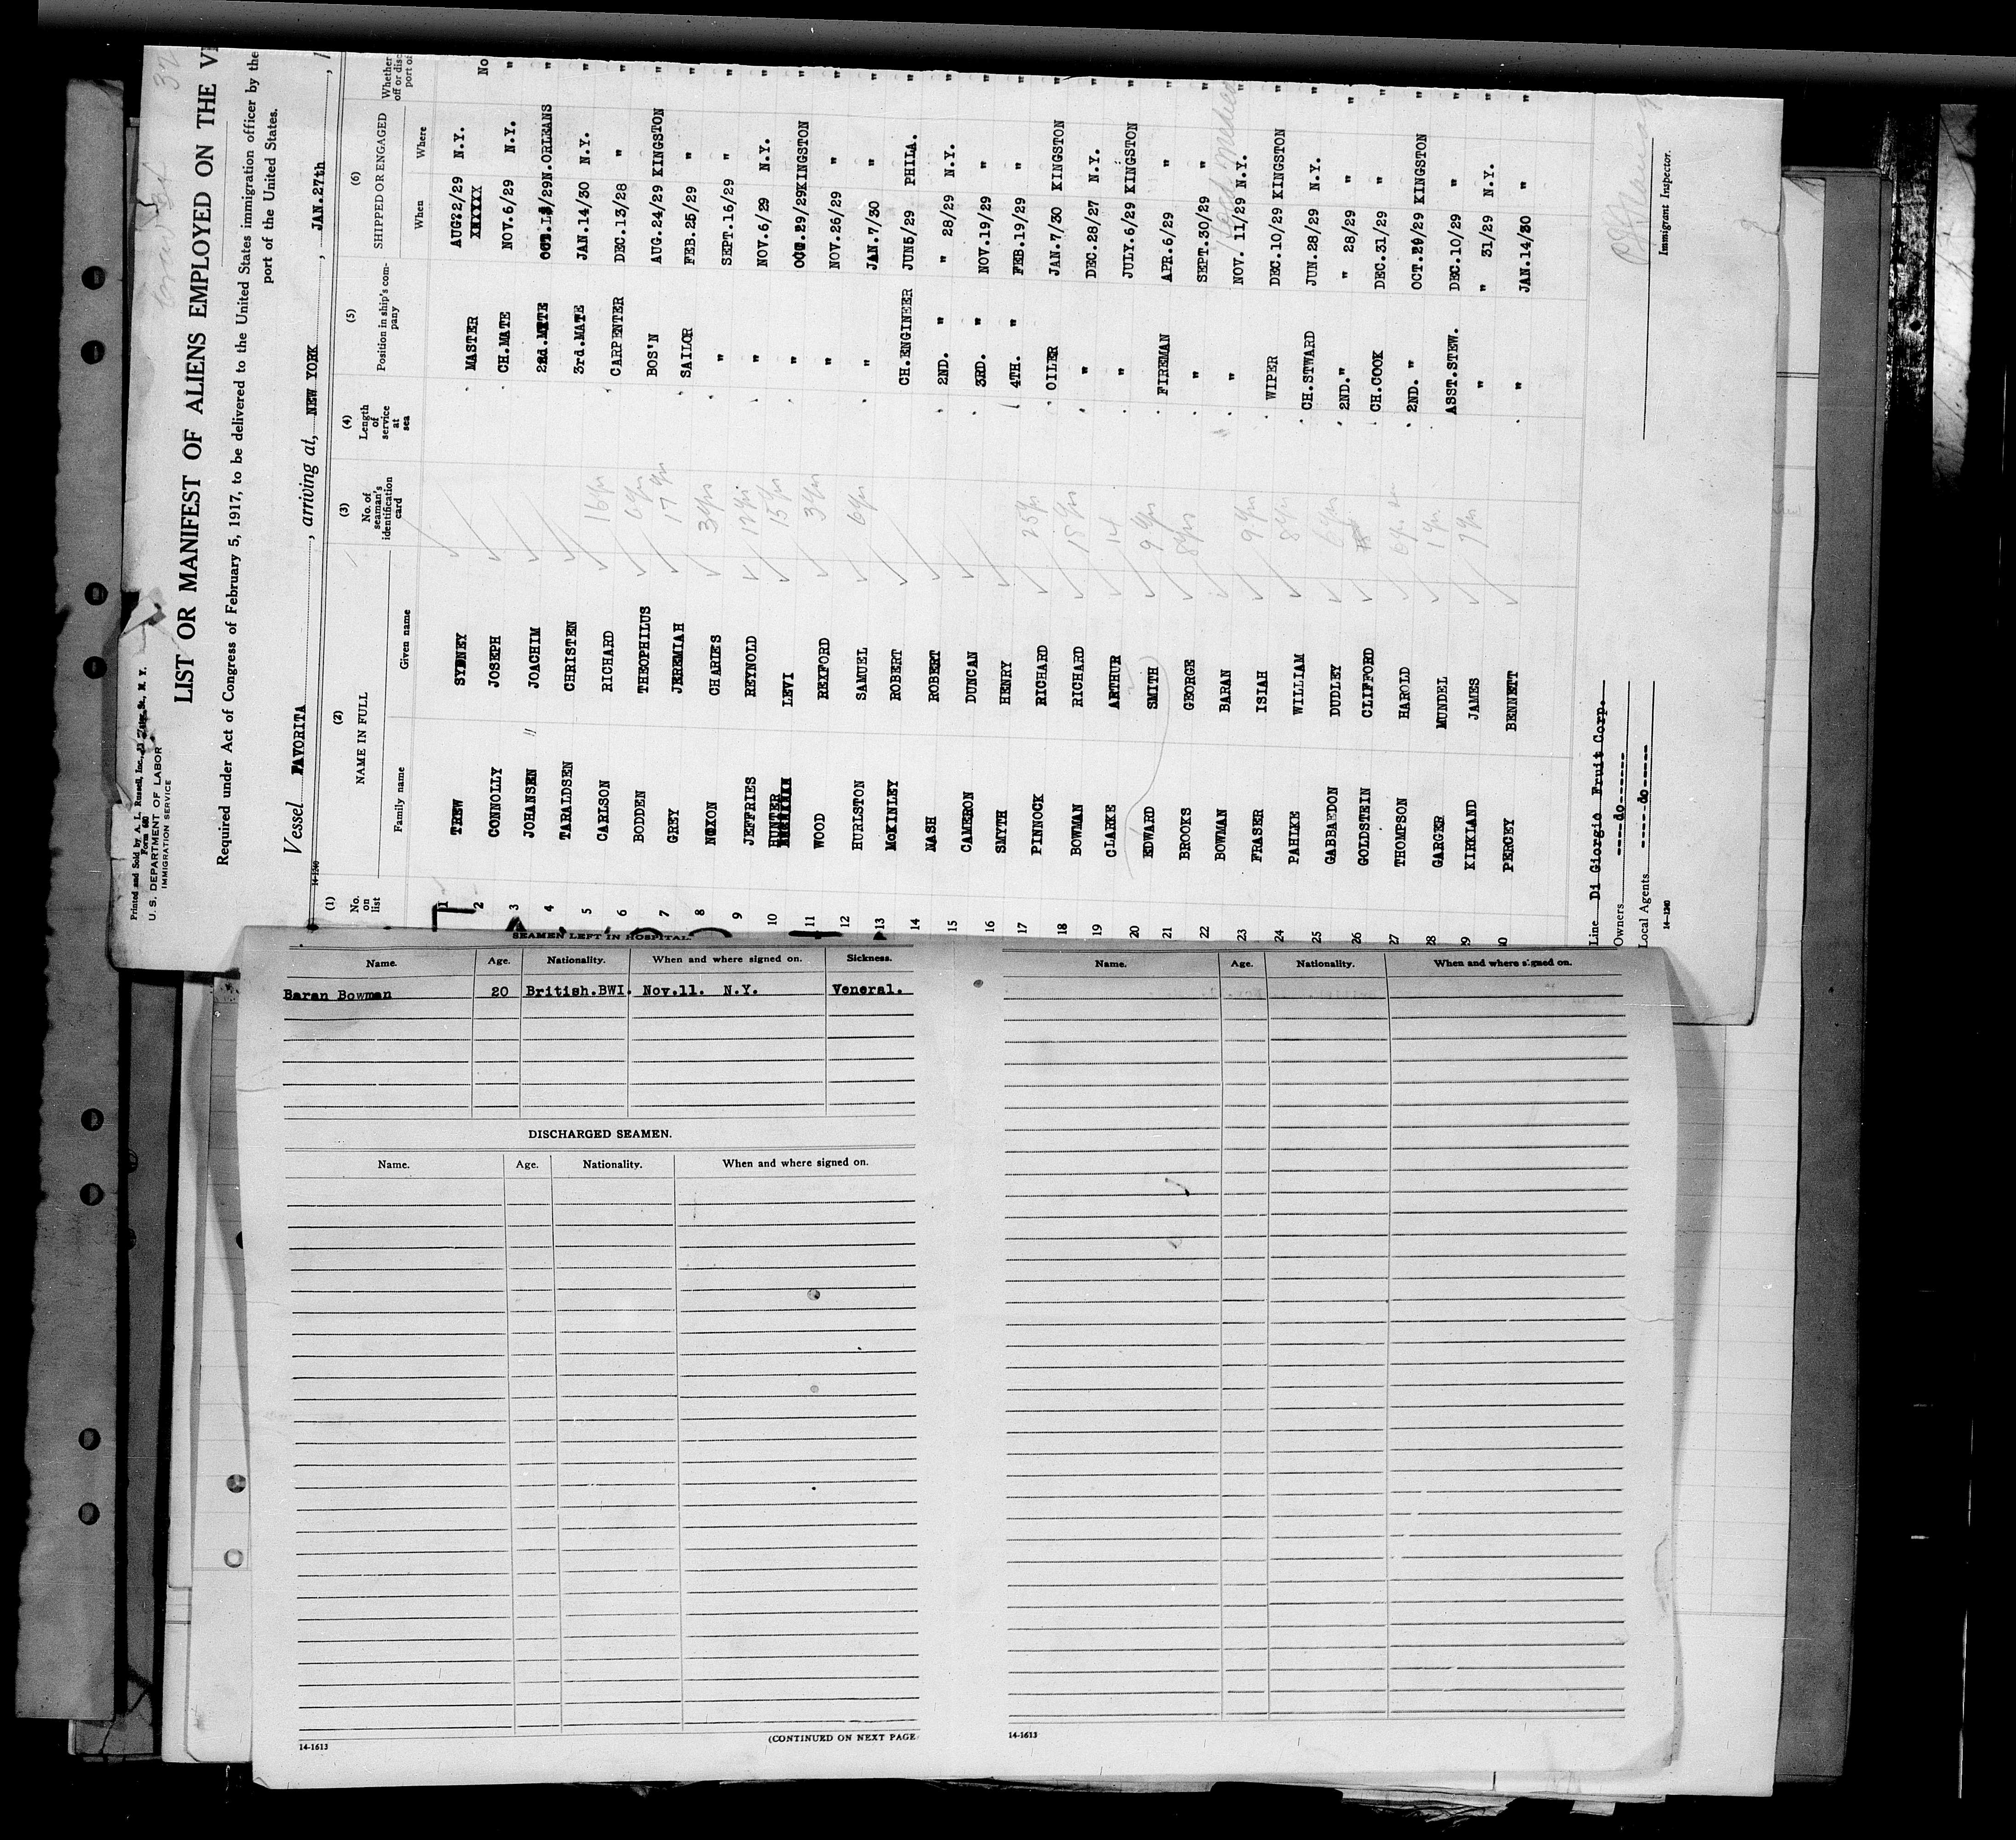 Printed and Sold by A. L. Russell, Inc., Water St., N. Y.
Form 680
U. S. DEPARTMENT OF LABOR
IMMIGRATION SERVICE
LIST OR MANIFEST OF ALIENS EMPLOYED ON THE
Required under Act of Congress of February 5, 1917, to be delivered to the United States immigration officer by the
port of the United States.
Vessel FAVORITA, arriving at, NEW YORK, JAN.27th, 1
14-1240
(1) (2) (3) (4) (5) (6)
No. on list NAME IN FULL No. of seaman's identification card Length of service at sea Position in ship's company SHIPPED OR ENGAGED Whether
Family name Given name When Where
1 TREW SYDNEY MASTER AUG?2/29 N.Y. No
XXXXXX
2 CONNOLLY JOSEPH CH.MATE NOV.6/29 N.Y. "
3 JOHANSEN JOACHIM 2nd.MATE N.ORLEANS "
4 TARALDSEN CHRISTEN 3rd.MATE JAN.14/30 N.Y. "
5 CARLSON RICHARD 16 yrs CARPENTER DEC.13/28 " "
6 BODDEN THEOPHILUS 6 yrs BOS'N AUG.24/29 KINGSTON "
7 GREY JEREMIAH 17 yrs SAILOR FEB.25/29 " "
8 NOXON CHARLES 3 yrs " SEPT.16/29 " "
9 JEFFRIES REYNOLD 12 yrs " NOV.6/29 N.Y. "
10 HUNTER LEVI 15 yrs " OCT.29/29 KINGSTON "
11 WOOD REXFORD 3 yrs " NOV.26/29 " "
12 HURLSTON SAMUEL 6 yrs " JAN.7/30 " "
13 McKINLEY ROBERT CH.ENGINEER JUN5/29 PHILA. "
14 NASH ROBERT 2ND. " " 28/29 N.Y. "
15 CAMERON DUNCAN 3RD. " NOV.19/29 " "
16 SMYTH HENRY 4TH. " FEB.19/29 " "
17 PINNOCK RICHARD 25 yrs OILER JAN.7/30 KINGSTON "
18 BOWMAN RICHARD 15 yrs " DEC.28/27 N.Y. "
19 CLARKE ARTHUR 14 " JULY.6/29 KINGSTON "
20 EDWARD SMITH 9 yrs FIREMAN APR.6/29 " "
21 BROOKS GEORGE 8 yrs " SEPT.30/29 " "
22 BOWMAN BARAN " NOV. 11/29 N.Y.
23 FRASER ISIAH 9 yrs WIPER DEC.10/29 KINGSTON "
24 PAHLKE WILLIAM 8 yrs CH.STWARD JUN.28/29 N.Y. "
25 GABBAEDON DUDLEY 6 yrs 2ND." " 28/29 " "
26 GOLDSTEIN CLIFFORD CH.COOK DEC.31/29 " "
27 THOMPSON HAROLD 6 yrs 2ND. " OCT.29/29 KINGSTON "
28 GARGER MUNDEL 1 yr ASST.STEW. DEC.10/29 " "
29 KIRKLAND JAMES 7 yrs " " 31/29 N.Y. "
30 PERCEY BENNETT " JAN.14/30 " "
Line Di Giorgio Fruit Corp.
Owners ----do------
Local Agents -----do-----
14-1240
Immigrant Inspector.
SEAMEN LEFT IN HOSPITAL.
Name. Age. Nationality. When and where signed on. Sickness.
Baran Bowman 20 British.BWI. Nov.11. N.Y. Veneral.
DISCHARGED SEAMEN.
Name. Age. Nationality. When and where signed on.
14-1613
(CONTINUED ON NEXT PAGE
Name. Age. Nationality. When and where signed on.
14-1613